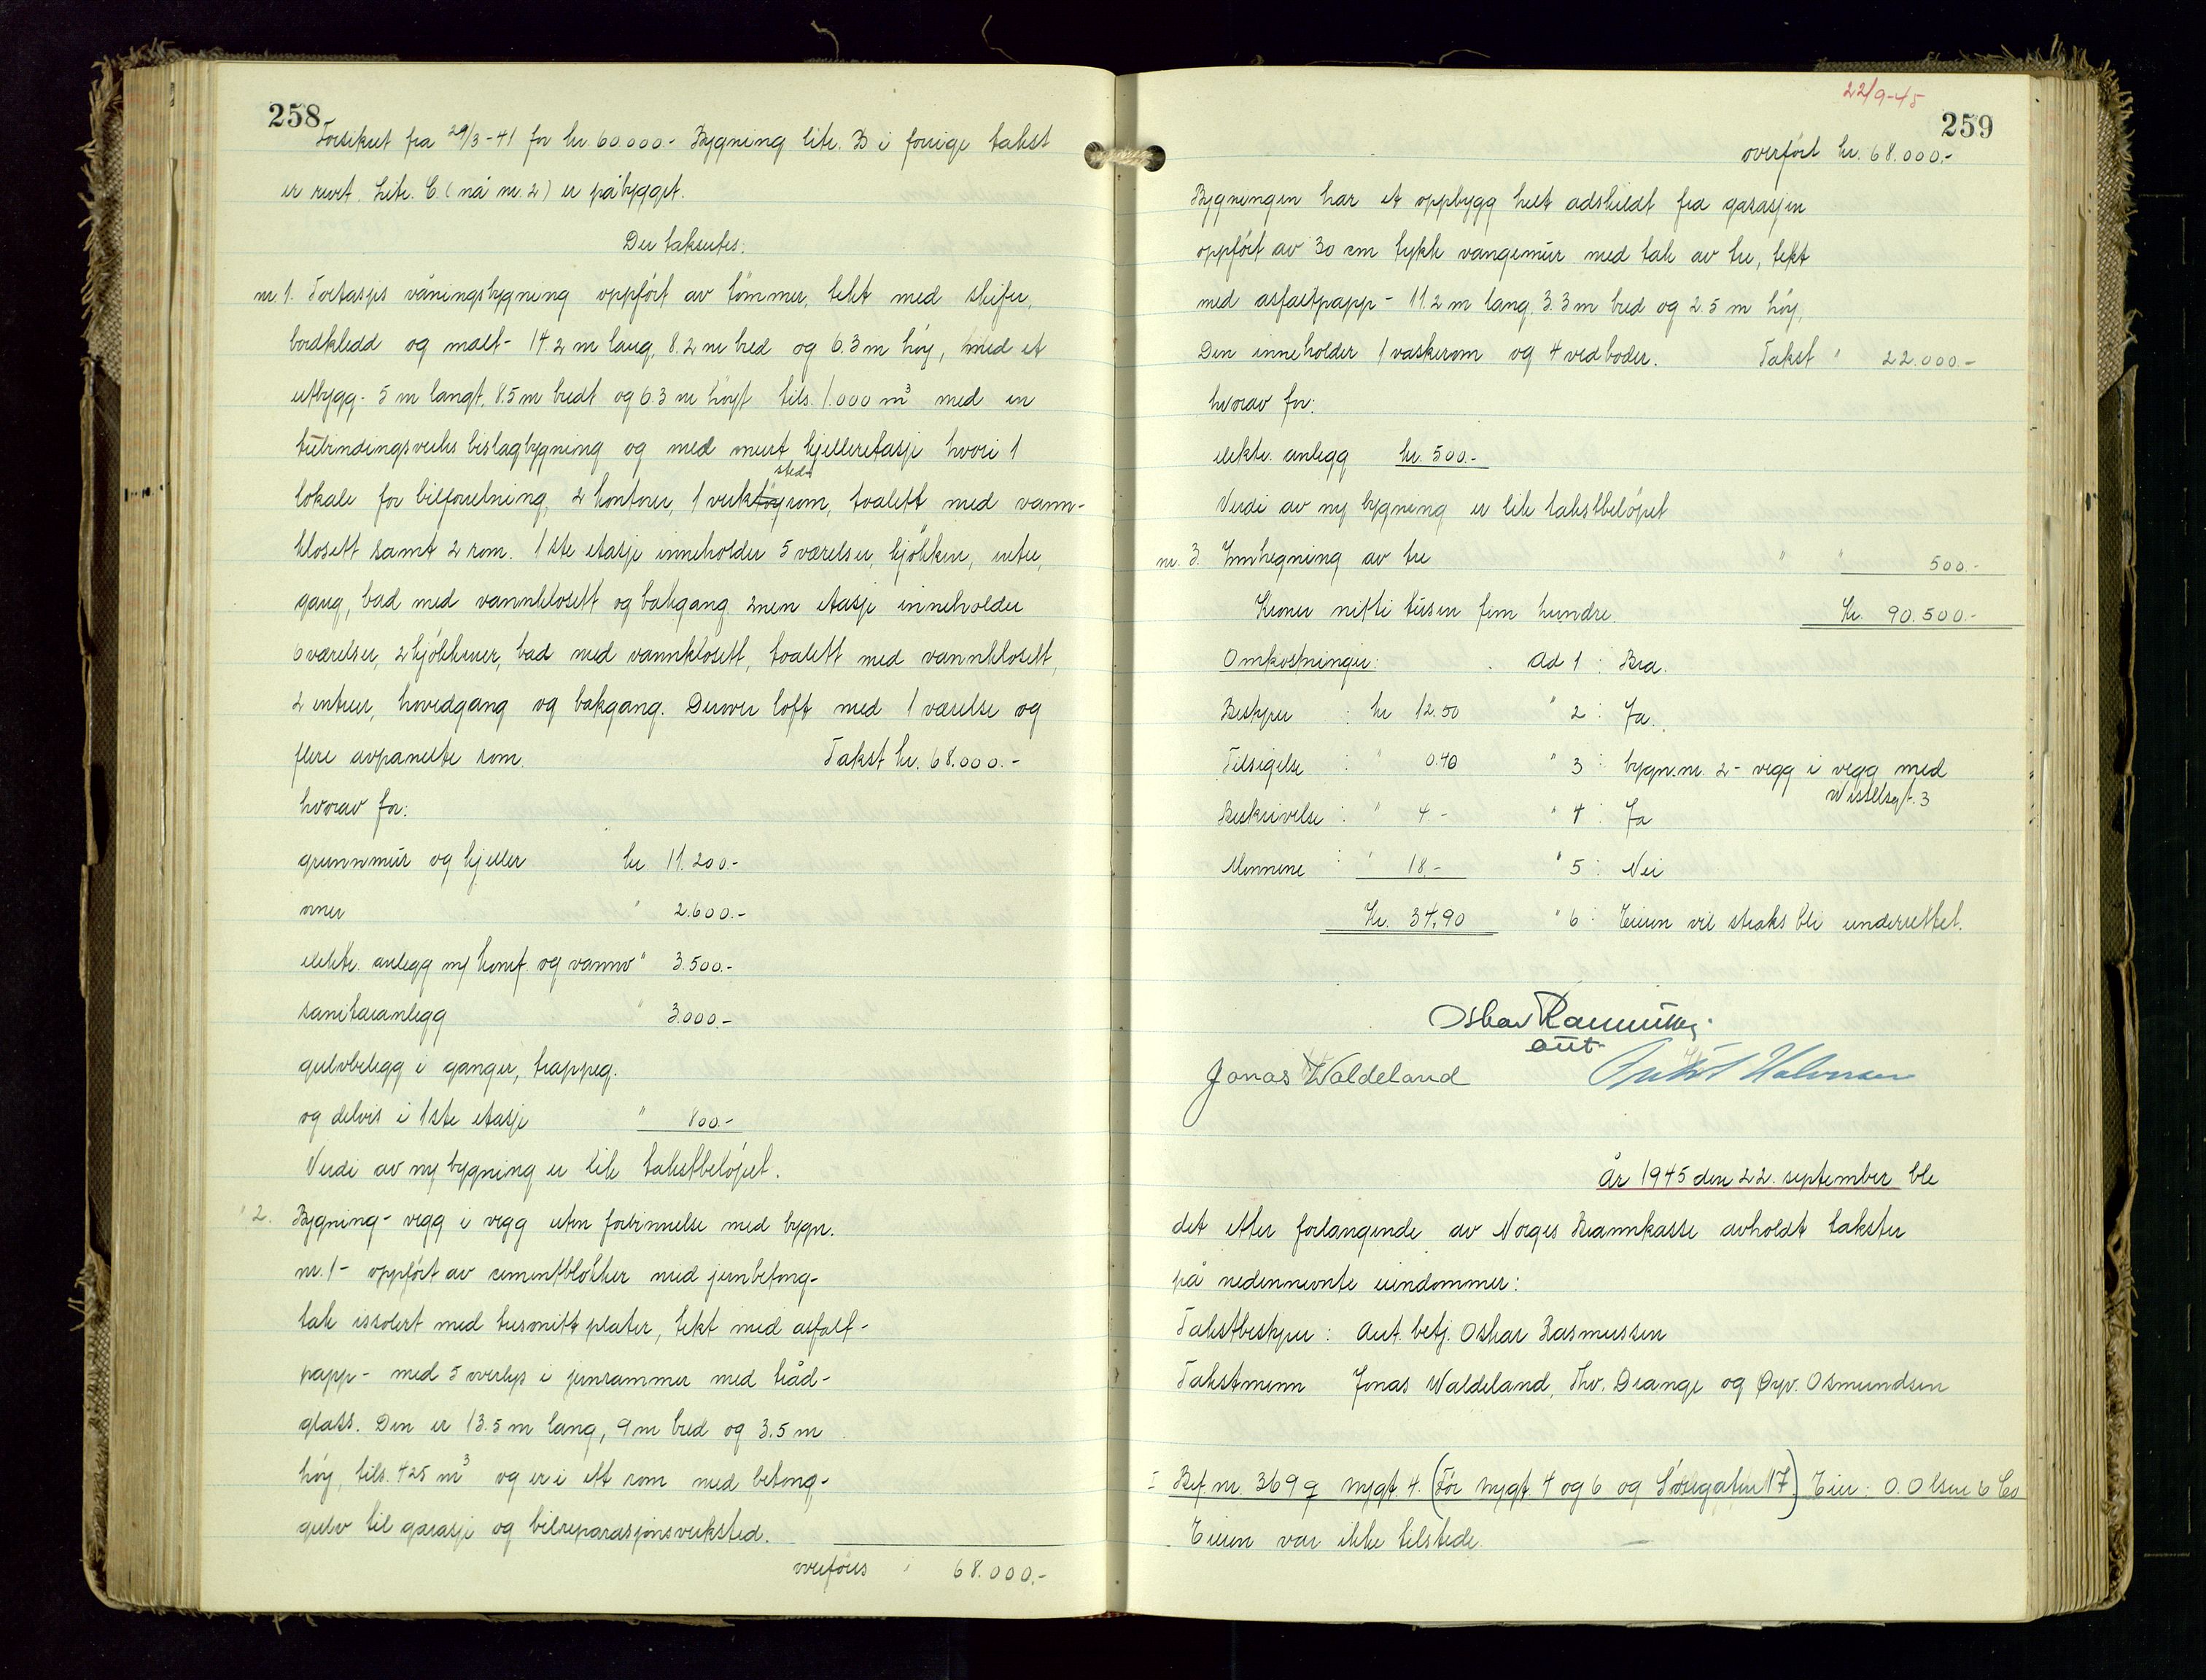 258
Forsikret fra 29/3-41 for kr. 60.000.- Bygning litr. B i forrige takst
er revet. Litr. C. (nå nr. 2) er påbygget.
Der takseres:
nr. 1. Toetasjes våningsbygning oppført av tømmer, tekt med skifer,
bordkledd og malt - 14.2 m lang, 8.2 m bred og 6.3 m høy, med et
utbygg - 5 m langt, 8.5 m bredt og 6.3 m høyt tils. 1.000 m³ med en
utbindingsverks bislagbygning og med muret kjelleretasje hvori 1
lokale for bilforretning, 2 kontorer, 1 verkstedrom, toalett med vann-
klosett samt 2 rom. 1ste etasje inneholder 5 værelser, kjøkken, entre,
gang, bad med vannklosett og bakgang. 2nen etasje inneholder
6 værelser, 2 kjøkkener, bad med vannklosett, toalett med vannklosett,
2 entreer, hovedgang og bakgang. Derover loft med 1 værelse og
flere avpanelte rom. Takst kr. 68.000.-
hvorav for:
grunnmur og kjeller kr 11.200.-
ovner " 2.600.-
elektr. anlegg m/ komf. og vannv " 3.500.-
sanitæranlegg " 3.000.-
gulvbelegg i ganger, trappeg.
og delvis i 1ste etasje " 800.-
Verdi av ny bygning er lik takstbeløpet.
" 2. Bygning - vegg i vegg uten forbinnelse med bygn.
nr. 1 - oppført av cementblokker med jernbetong-
tak issolert med treonitt plater, tekt med asfalt-
papp - med 5 overlys i jernrammer med tråd-
glass. Den er 13.5 m lang, 9 m bred og 3.5 m
høy, tils. 425 m³ og er i ett rom med betong-
gulv til garasje og bilreparasjonsverksted.
overføres " 68.000.-
22/9-45
259
overført kr. 68.000.-
Bygningen har et oppbygg helt adskildt fra garasjen
oppført av 30 cm tykk vangemur med tak av tre, tekt
med asfaltpapp - 11.2 m lang, 3.3 m bred og 2.5 m høy.
Den inneholder 1 vaskerom og 4 vedboder. Takst " 22.000.-
hvorav for:
elektr. anlegg kr. 500.-
Verdi av ny bygning er lik takstbeløpet
nr. 3. Innhegning av tre " " 500.-
Kroner nitti tusen fem hundre. Kr. 90.500.-
Omkostninger: Ad 1 : Bra.
Bestyrer : kr 12.50 " 2 : Ja.
Tilsigelse : " 0.40 " 3 : bygn. nr. 2 - vegg i vegg med
Wesselsgt. 3
Beskrivelse : " 4.- " 4 : Ja
Mennene : " 18.- " 5 : Nei
Kr. 34,90 " 6 : Eieren vil straks bli underrettet.
Oskar Rasmussen
aut.
Jonas Waldeland Halvorsen
År 1945 den 22. september ble
det etter forlangende av Norges Brannkasse avholdt takster
på nedennevnte eiendommer:
Takstbestyrer : Aut. betj. Oskar Rasmussen
Takstmenn Jonas Waldeland, Thv. Drange og Øyv. Osmundsen
I Brf. nr. 369 q Nygt. 4. (Før Nygt. 4 og 6 og Sørregaten 17) Eier: O. Olsen & Co
Eieren var ikke tilstede.